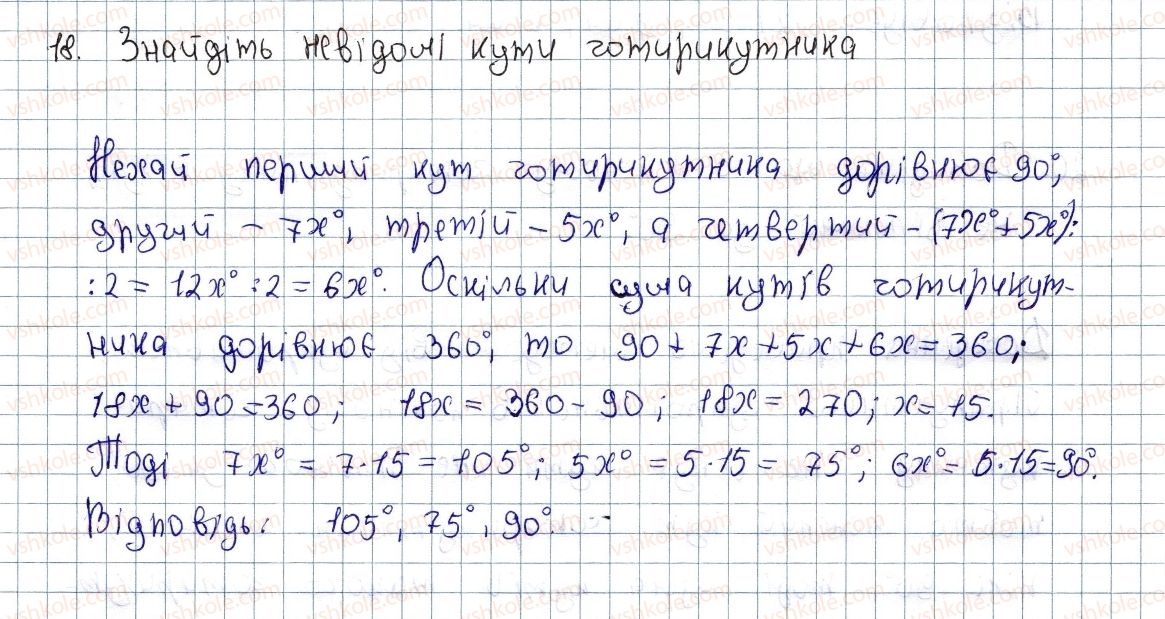 18. Знайдіть невідомі кути чотирикутника
Нехай перший кут чотирикутника дорівнює 90°,
другий – 7x°, третій – 5x°, а четвертий – (7x°+5x°):
:2 = 12x° : 2 = 6x°. Оскільки сума кутів чотирикут-
ника дорівнює 360°, то 90 + 7x + 5x + 6x = 360;
18x + 90 = 360; 18x = 360 – 90; 18x = 270; x = 15.
Тоді 7x° = 7·15 = 105°; 5x° = 5·15 = 75°; 6x° = 6·15 = 90°.
Відповідь: 105°, 75°, 90°.